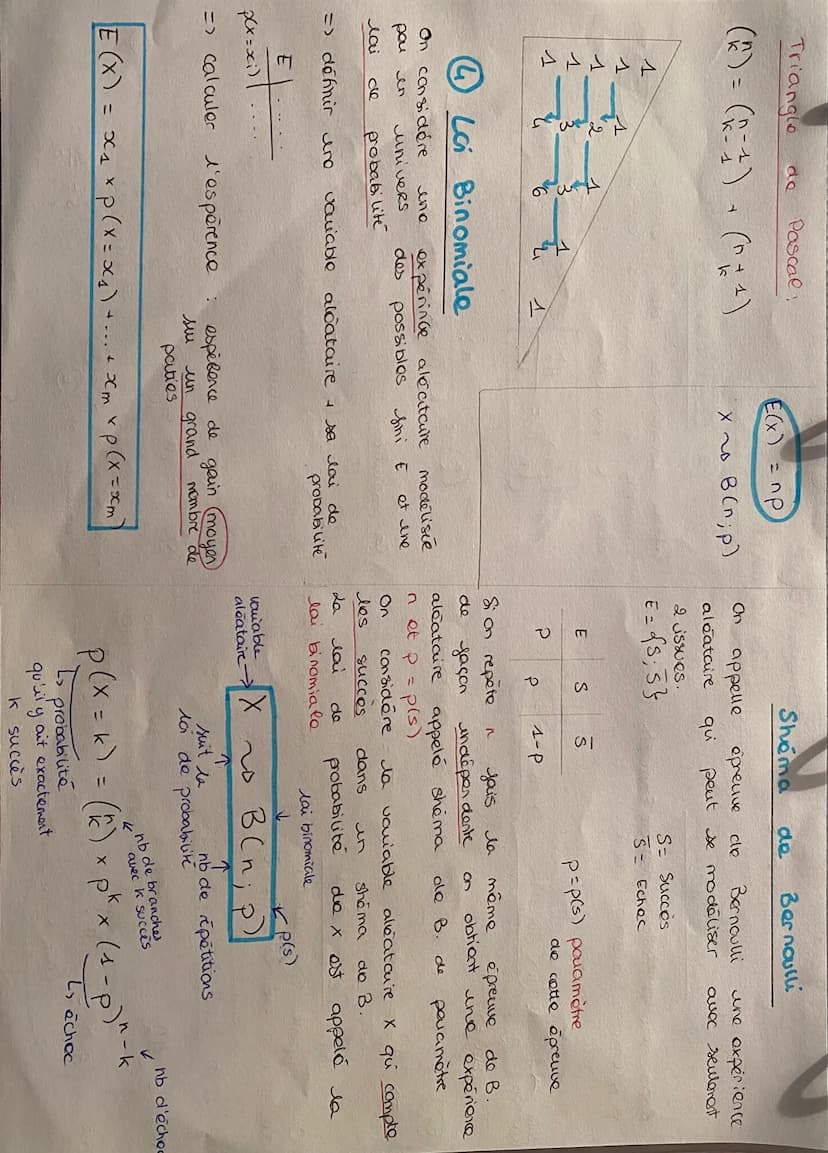 Triangle de Pascal:
(n k) = (n-1 k-1) + (n+1 k)
1
1 1
1 2 1
1 3 3 1
1 4 6 4 1
④ Loi Binomiale
On considère une expérince aléatoire modélisée
par un univers des possibles fini E et une
loi de probabilité
=> définir une variable aléatoire + sa loi de
probabilité
E | .....
p(x=xi) | ....
=> calculer l'espérence : espérence de gain moyen
su un grand nombre de
parties
E(X) = x1 × p(x=x1) + ... + xm × p(x=xm)
E(x) = np
X ~> B(n;p)
Shéma de Bernoulli
On appelle épreuve de Bernoulli une expérience
aléatoire qui peut se modéliser avec seulement
2 issues.
E = {S; S̅}
S = Succès
S̅ = Echec
E | S | S̅
P | p | 1-p
p = p(S) paramètre
de cette épreuve
Si on repète n fois la même épreuve de B.
de façon indépendante on obtient une expérience
aléatoire appelé shéma de B. de paramètre
n et p = p(S)
On considère la variable aléatoire X qui compte
les succès dans un shéma de B.
La loi de probabilité de X est appelé la
loi binomiale
loi binomiale
p(S)
variable
aléatoire → X ~> B(n; p)
suit la
loi de probabilité
nb de répétitions
nb de branches
avec k succès
nb d'échec
p(X = k) = (n k) × p^k × (1-p)^n-k
↳ probabilité
qu'il y ait exactement
k succès
↳ échec